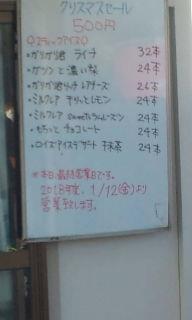 クリスマスセール
500円
○スティックアイス○
・ガリガリ君 ライチ 32本
・ガツン と 濃い 24本
・ガリガリ君リッチ レアチーズ 26本
・ミルクレア チリッとレモン 24本
・ミルクレア ラムレーズン 24本
・もちっと チョコレート 24本
・ロイズアイスデザート 抹茶 24本
※本日、最終営業日です。
2018年度、1/12(金)より
営業致します。